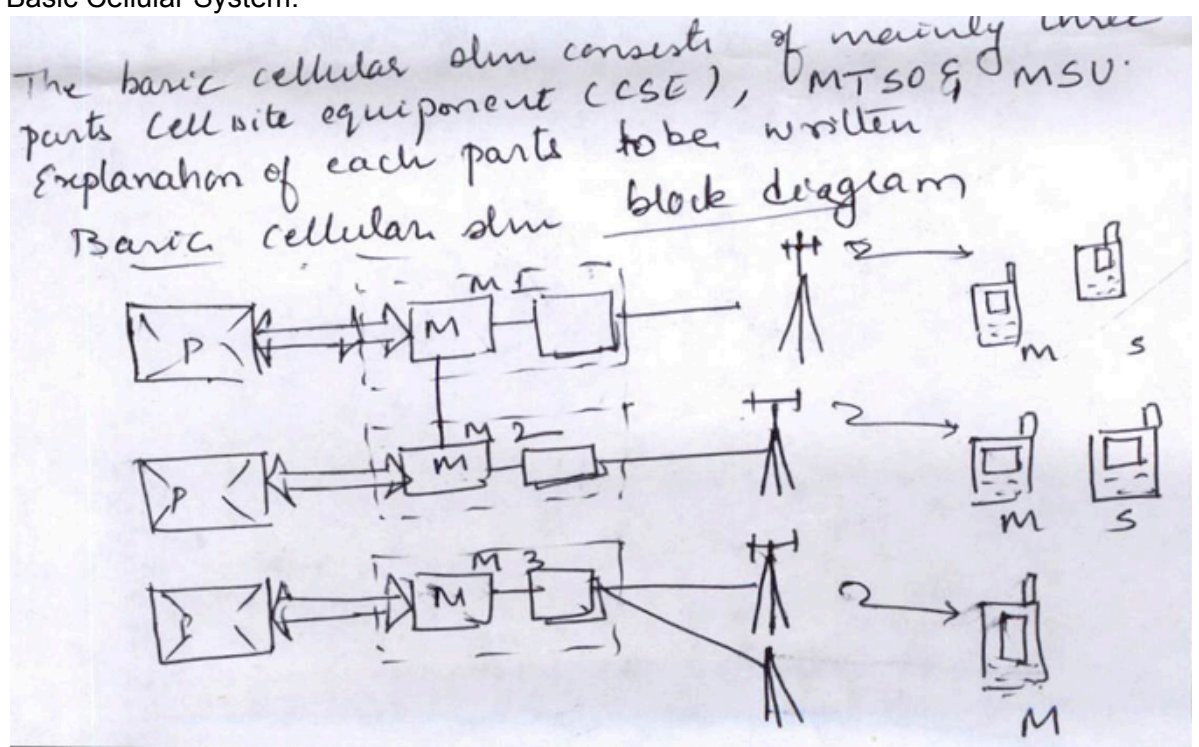 Basic Cellular System:
The basic cellular slm consists of mainly three
parts Cell site equiponent (CSE), MTSO & MSU.
Explanation of each parts to be written
Basic cellular slm block diagram
M 1
P M
M S
M 2
P M
M S
M 3
P M
M